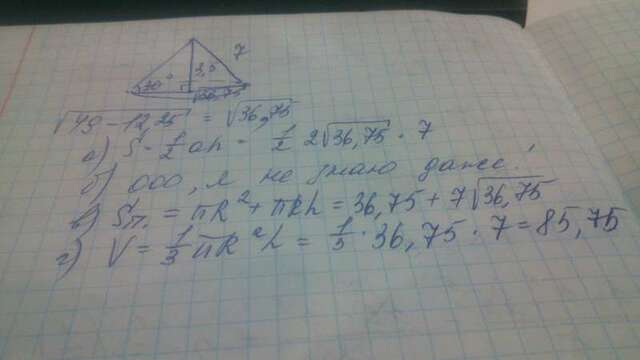 7
3,5
30°
√36,75
√49-12,25 = √36,75
а) S = 1/2 ah = 1/2 2√36,75 · 7
б) ооо, я не знаю даже!
в) Sп. = πR² + πRh = 36,75 + 7√36,75
г) V = 1/3 πR²h = 1/3 · 36,75 · 7 = 85,75